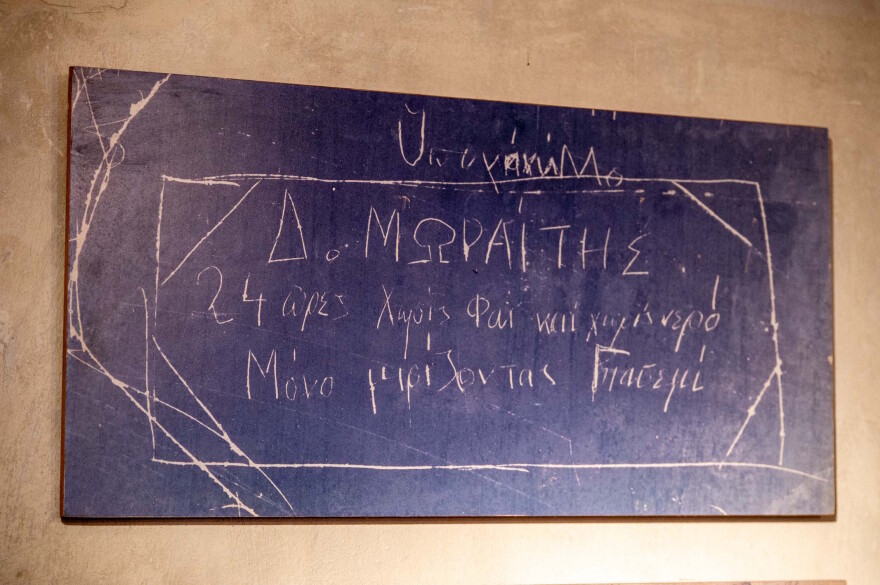 Δ. ΜΩΡΑΪΤΗΣ
24 ώρες χωρίς φαΐ και χωρίς νερό
Μόνο μυρίζοντας Γιασεμί